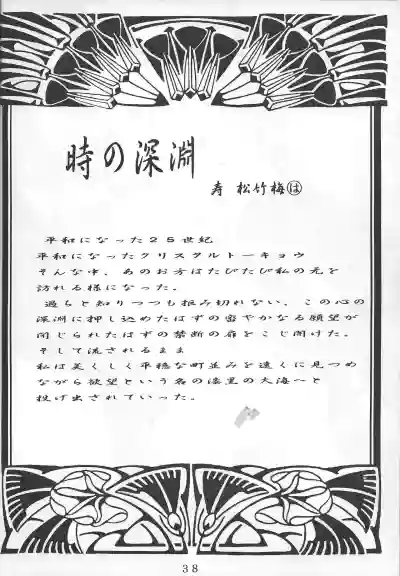 時の深淵
寿 松竹梅は
平和になった25世紀
平和になったクリスタルトーキョウ
そんな中、あのお方はたびたび私の元を
訪れる様になった。
過ちと知りつつも拒み切れない、この心の
深淵に押し込めたはずの密やかなる願望が
閉じられたはずの禁断の扉をこじ開けた。
そして流されるまま
私は美しく平穏な町並みを遠くに見つめ
ながら欲望という名の漆黒の大海へと
投げ出されていった。
38